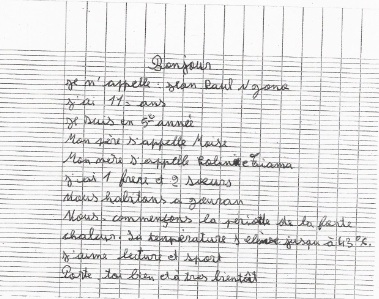 Bonjour
je m'appelle : Jean Paul
j'ai 11 ans
je suis en 5e année
Mon père s'appelle Moise
Mon mere s'appelle
j'ai 1 frere et 2 soeurs
Nous habitons a
Nous commençons la periode de la forte
chaleur. La température s'eleve jusqu'à 43°c.
j'aime lecture et sport
Porte toi bien et à tres bientôt